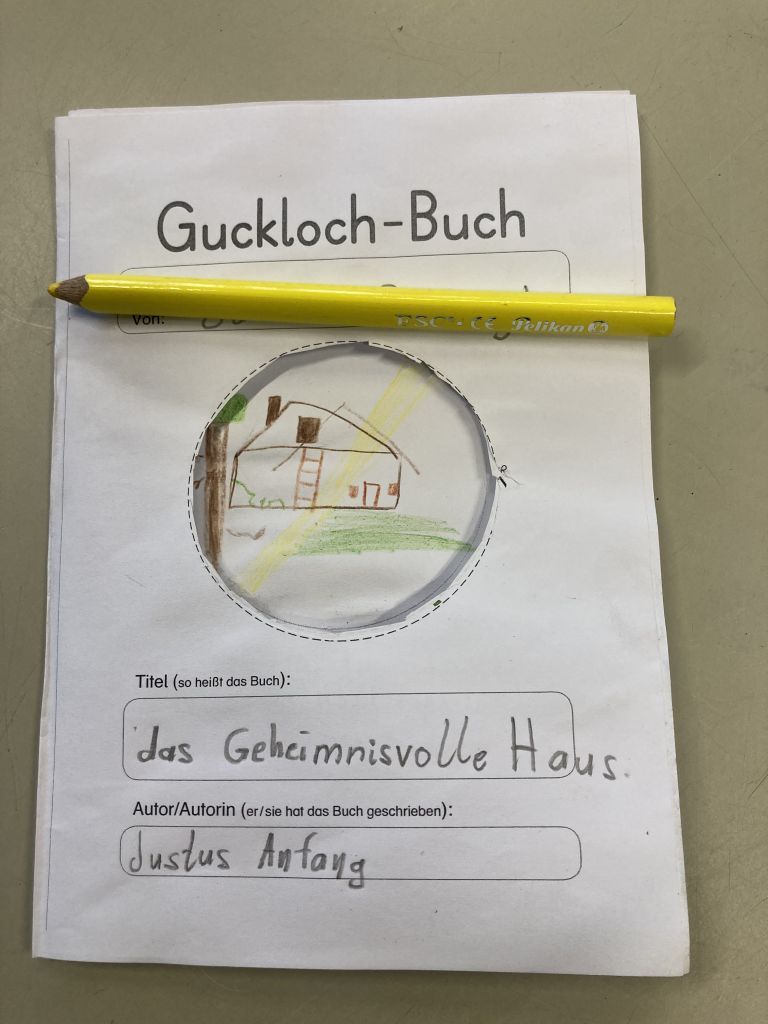 Guckloch-Buch
von:
FSC CE Pelikan
Titel (so heißt das Buch):
das Geheimnisvolle Haus.
Autor/Autorin (er/sie hat das Buch geschrieben):
Justus Anfang